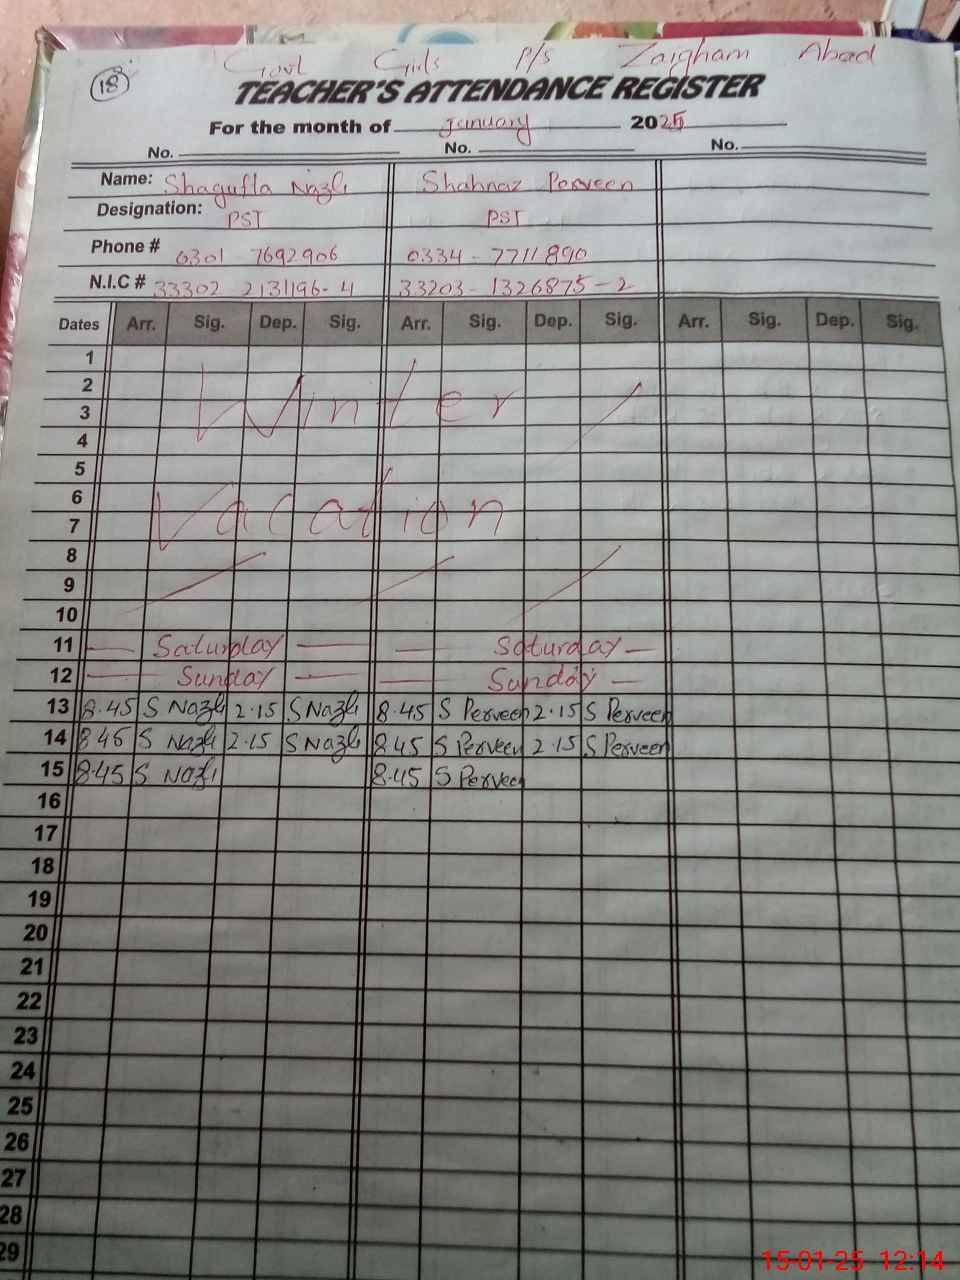 Govt Girls P/S Zaigham Abad
18
TEACHER'S ATTENDANCE REGISTER
For the month of January 2025
No. No. No.
Name: Shagufta Nazli Shahnaz Perveen
Designation: PST PST
Phone # 0301 - 7692906 0334 - 7711890
N.I.C # 33302 - 2131196-4 33203 - 1326875 - 2
Dates Arr. Sig. Dep. Sig. Arr. Sig. Dep. Sig. Arr. Sig. Dep. Sig.
1
2
3 Winter
4
5
6
7 Vacation
8
9
10
11 Saturday Saturday
12 Sunday Sunday
13 8.45 S Nazli 2.15 S Nazli 8.45 S Perveen 2.15 S Perveen
14 8.45 S Nazli 2.15 S Nazli 8.45 S Perveen 2.15 S Perveen
15 8.45 S Nazli 8.45 S Perveen
16
17
18
19
20
21
22
23
24
25
26
27
28
29
15-01-25 12:14